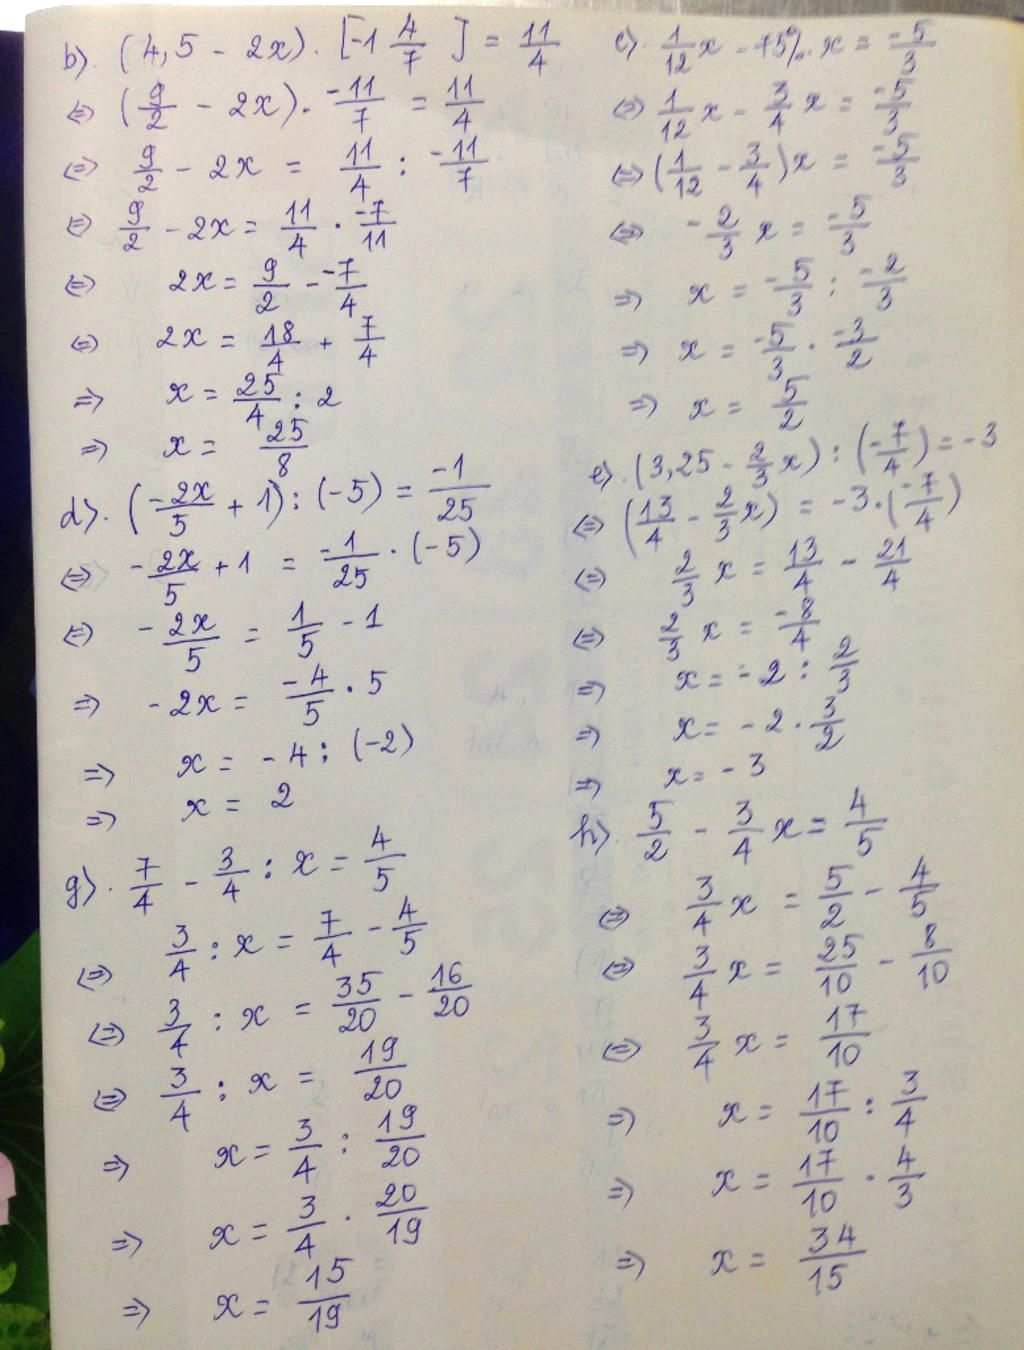 b). (4,5 - 2x). [-1 4/7 ] = 11/4
<=> (9/2 - 2x). -11/7 = 11/4
<=> 9/2 - 2x = 11/4 : -11/7
<=> 9/2 - 2x = 11/4 . -7/11
<=> 2x = 9/2 - -7/4
<=> 2x = 18/4 + 7/4
=> x = 25/4 : 2
=> x = 25/8
d). (-2x/5 + 1) : (-5) = -1/25
<=> -2x/5 + 1 = -1/25 . (-5)
<=> -2x/5 = 1/5 - 1
=> -2x = -4/5 . 5
=> x = -4 : (-2)
=> x = 2
g). 7/4 - 3/4 : x = 4/5
<=> 3/4 : x = 7/4 - 4/5
<=> 3/4 : x = 35/20 - 16/20
<=> 3/4 : x = 19/20
=> x = 3/4 : 19/20
=> x = 3/4 . 20/19
=> x = 15/19
c). 1/12 x - 75%. x = -5/3
<=> 1/12 x - 3/4 x = -5/3
<=> (1/12 - 3/4)x = -5/3
<=> -2/3 x = -5/3
=> x = -5/3 : -2/3
=> x = -5/3 . -3/2
=> x = 5/2
e). (3,25 - 2/3 x) : (-7/4) = -3
<=> (13/4 - 2/3 x) = -3.(-7/4)
<=> 2/3 x = 13/4 - 21/4
<=> 2/3 x = -8/4
=> x = -2 : 2/3
=> x = -2 . 3/2
=> x = -3
h). 5/2 - 3/4 x = 4/5
<=> 3/4 x = 5/2 - 4/5
<=> 3/4 x = 25/10 - 8/10
<=> 3/4 x = 17/10
=> x = 17/10 : 3/4
=> x = 17/10 . 4/3
=> x = 34/15